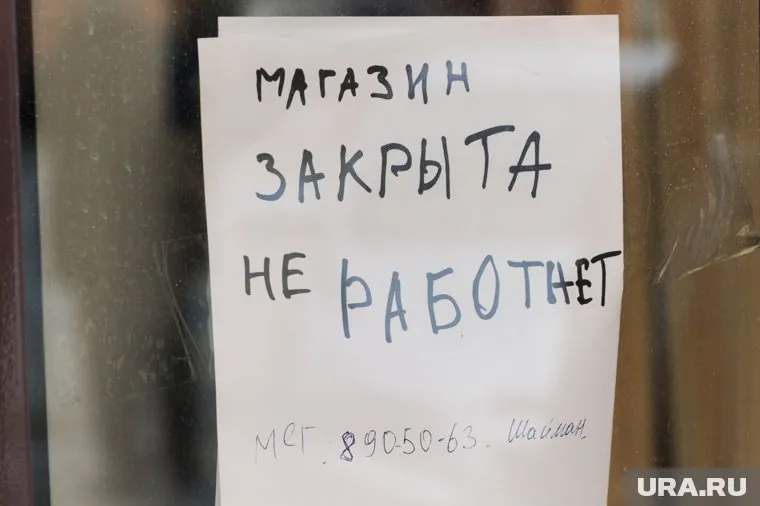 МАГАЗИН
ЗАКРЫТА
НЕ РАБОТАЕТ
МСГ. 890-50-63. Шайман.
URA.RU